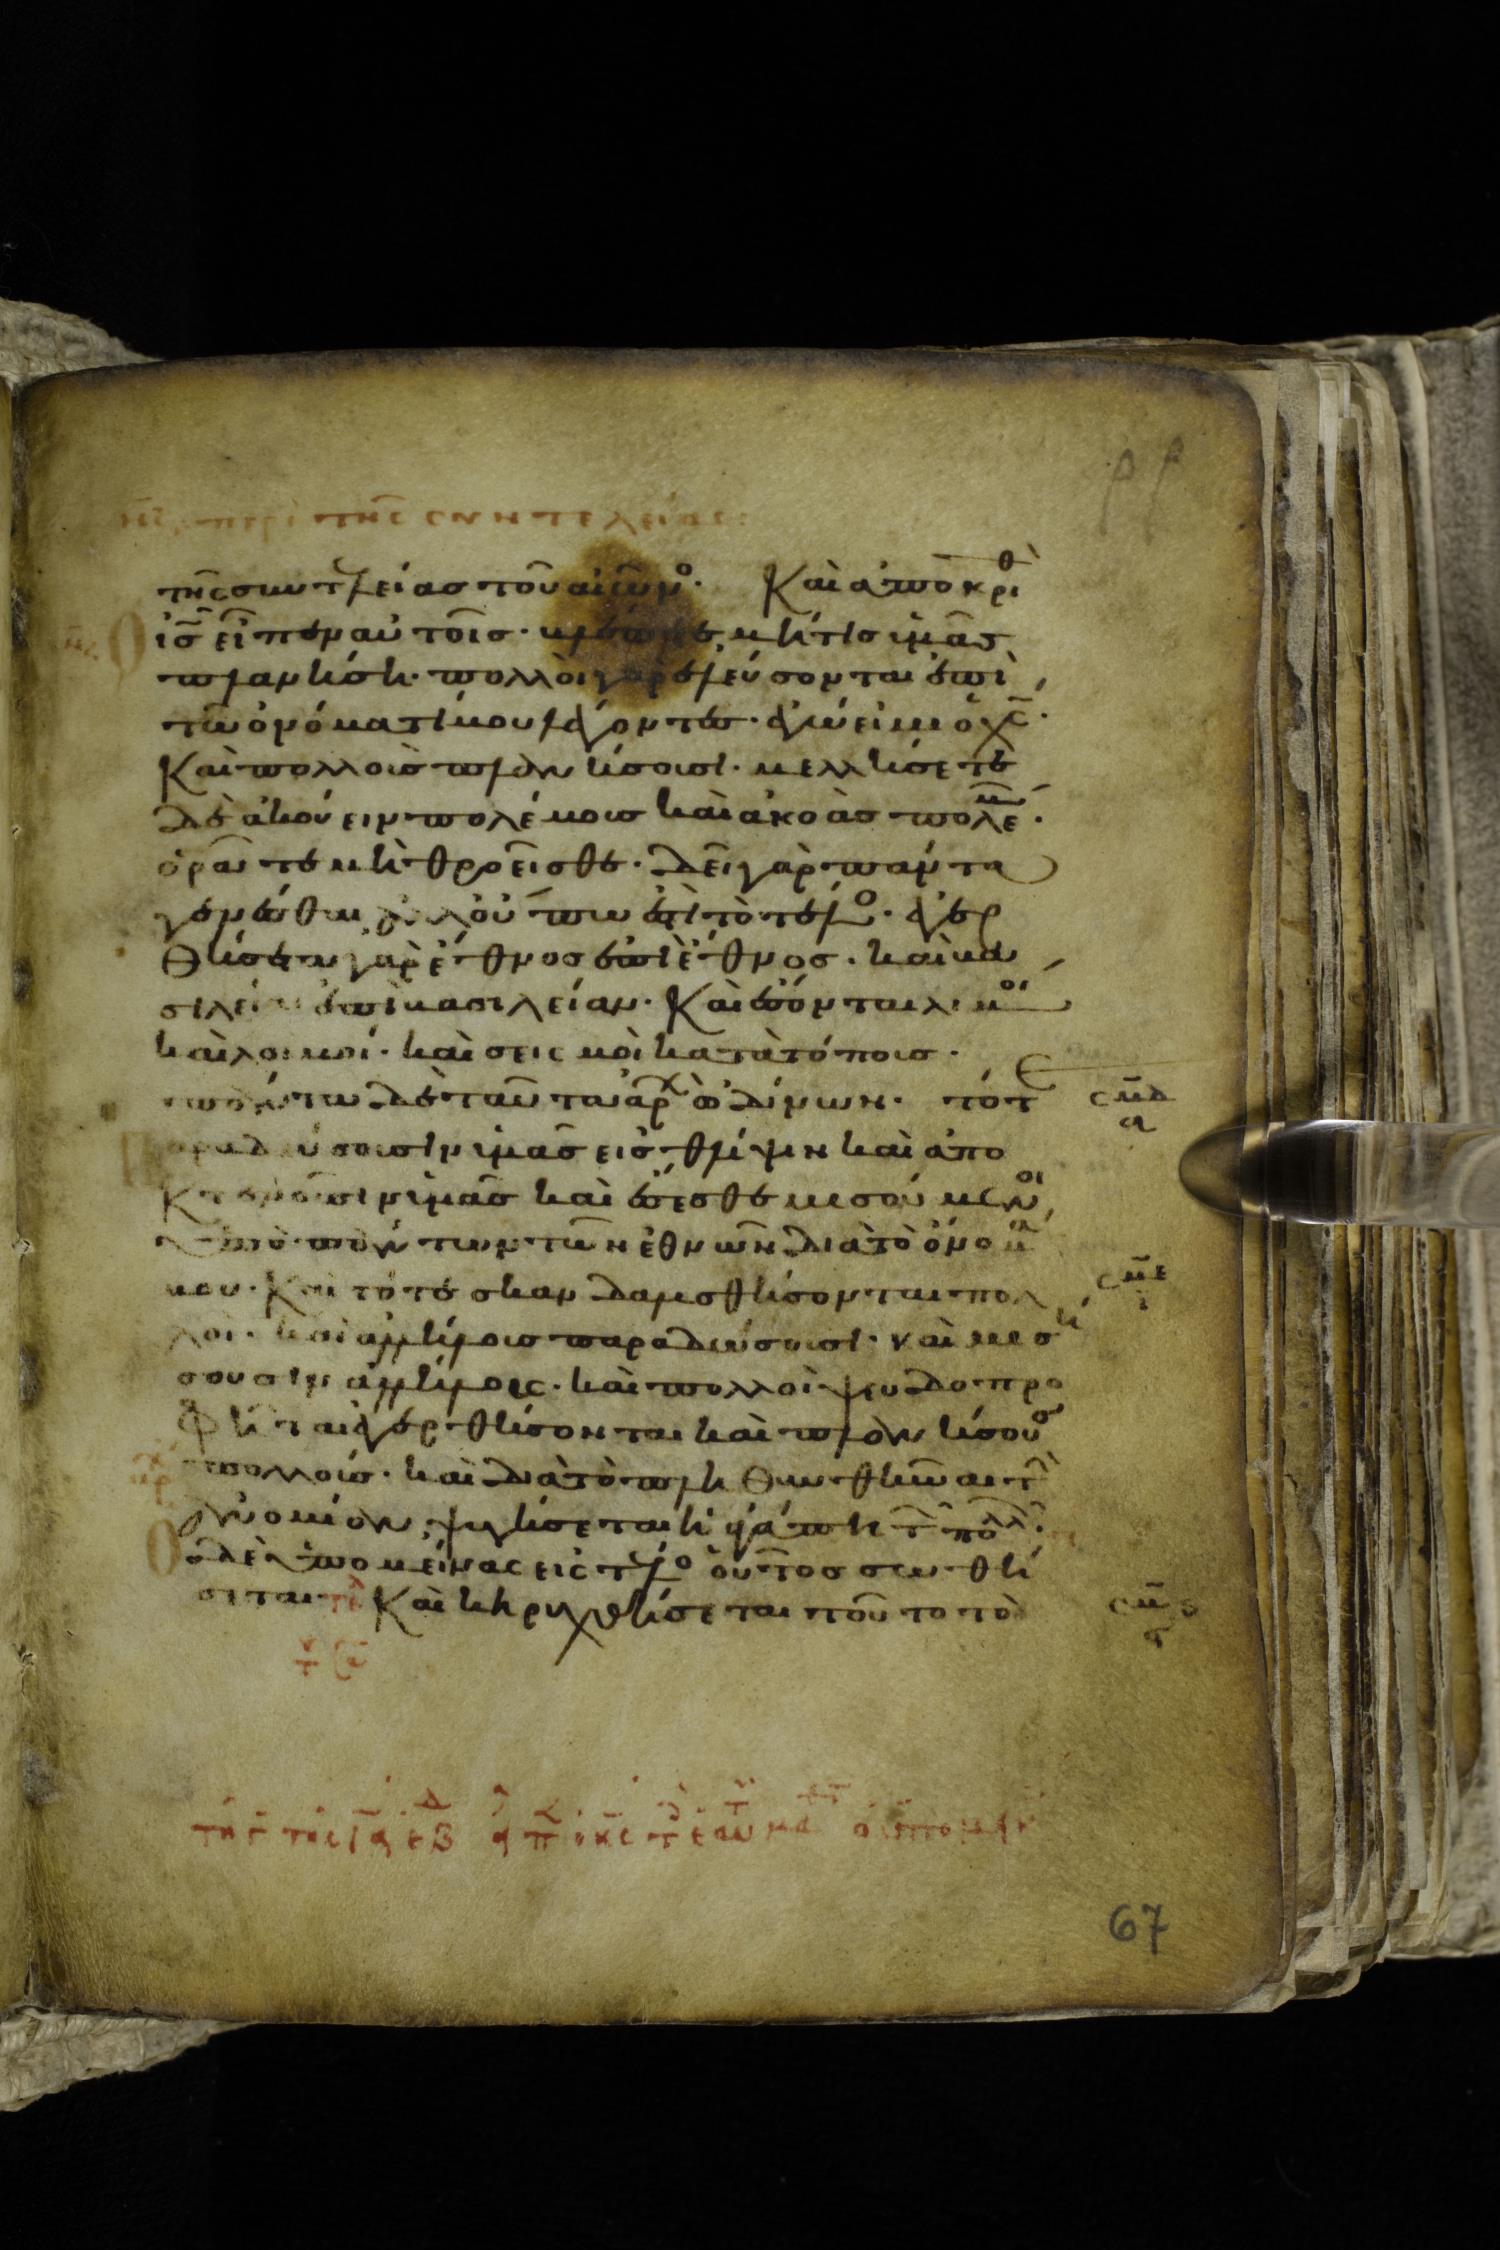 περὶ τῆς συντελείας:
τῆς συντελείας τοῦ αἰῶνο. Καὶ ἀποκριθ
ὁ ἰς εἶπεν αὐτοῖς· βλέπετε, μή τις ὑμᾶς
πλανήσῃ· πολλοὶ γὰρ ἐλεύσονται ἐπὶ
τῶ ὀνόματί μου λέγοντες· ἐγώ εἰμι ὁ χς·
Καὶ πολλοὺς πλανήσουσι· μελλήσετε
δὲ ἀκούειν πολέμους καὶ ἀκοὰς πολεμ·
ὁρᾶτε μὴ θροεῖσθε· δεῖ γὰρ πάντα
γενέσθαι ἀλλ οὔπω ἐστὶ τὸ τέλο· ἐγερ
θήσεται γὰρ ἔθνος ἐπὶ ἔθνος· καὶ βα
σιλεία ἐπὶ βασιλείαν· Καὶ ἔσονται λιμοί
καὶ λοιμοί· καὶ σεισμοὶ κατὰ τόπους·
πάντα δὲ ταῦτα ἀρχ ὠδίνων· τότ
Παραδώσουσιν ὑμᾶς εἰς θλίψιν καὶ ἀπο
Κτενοῦσιν ὑμᾶς καὶ ἔσεσθε μισούμενοι
ὑπὸ πάντων τῶν ἐθνῶν διὰ τὸ ὄνομα
μου· Καὶ τότε σκανδαλισθήσονται πολ
λοί· καὶ ἀλλήλους παραδώσουσι· καὶ μισή
σουσιν ἀλλήλους· καὶ πολλοὶ ψευδοπρο
Φῆται ἐγερθήσονται καὶ πλανήσου
πολλούς· καὶ διὰ τὸ πληθυνθῆναι τ
ἀνομίαν, ψυγήσεται ἡ ἀγάπη τ πολλ·
Ὁ δὲ ὑπομείνας εἰς τέλο οὗτος σωθή
σεται τε Καὶ κηρυχθήσεται τοῦτο τὸ
67